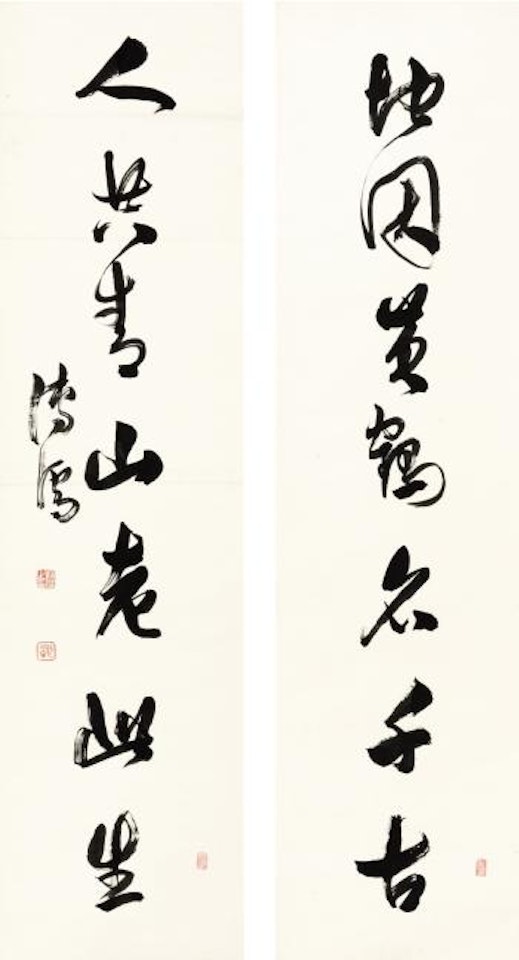 地因黃鶴名千古
人共青山老此生
溥儒